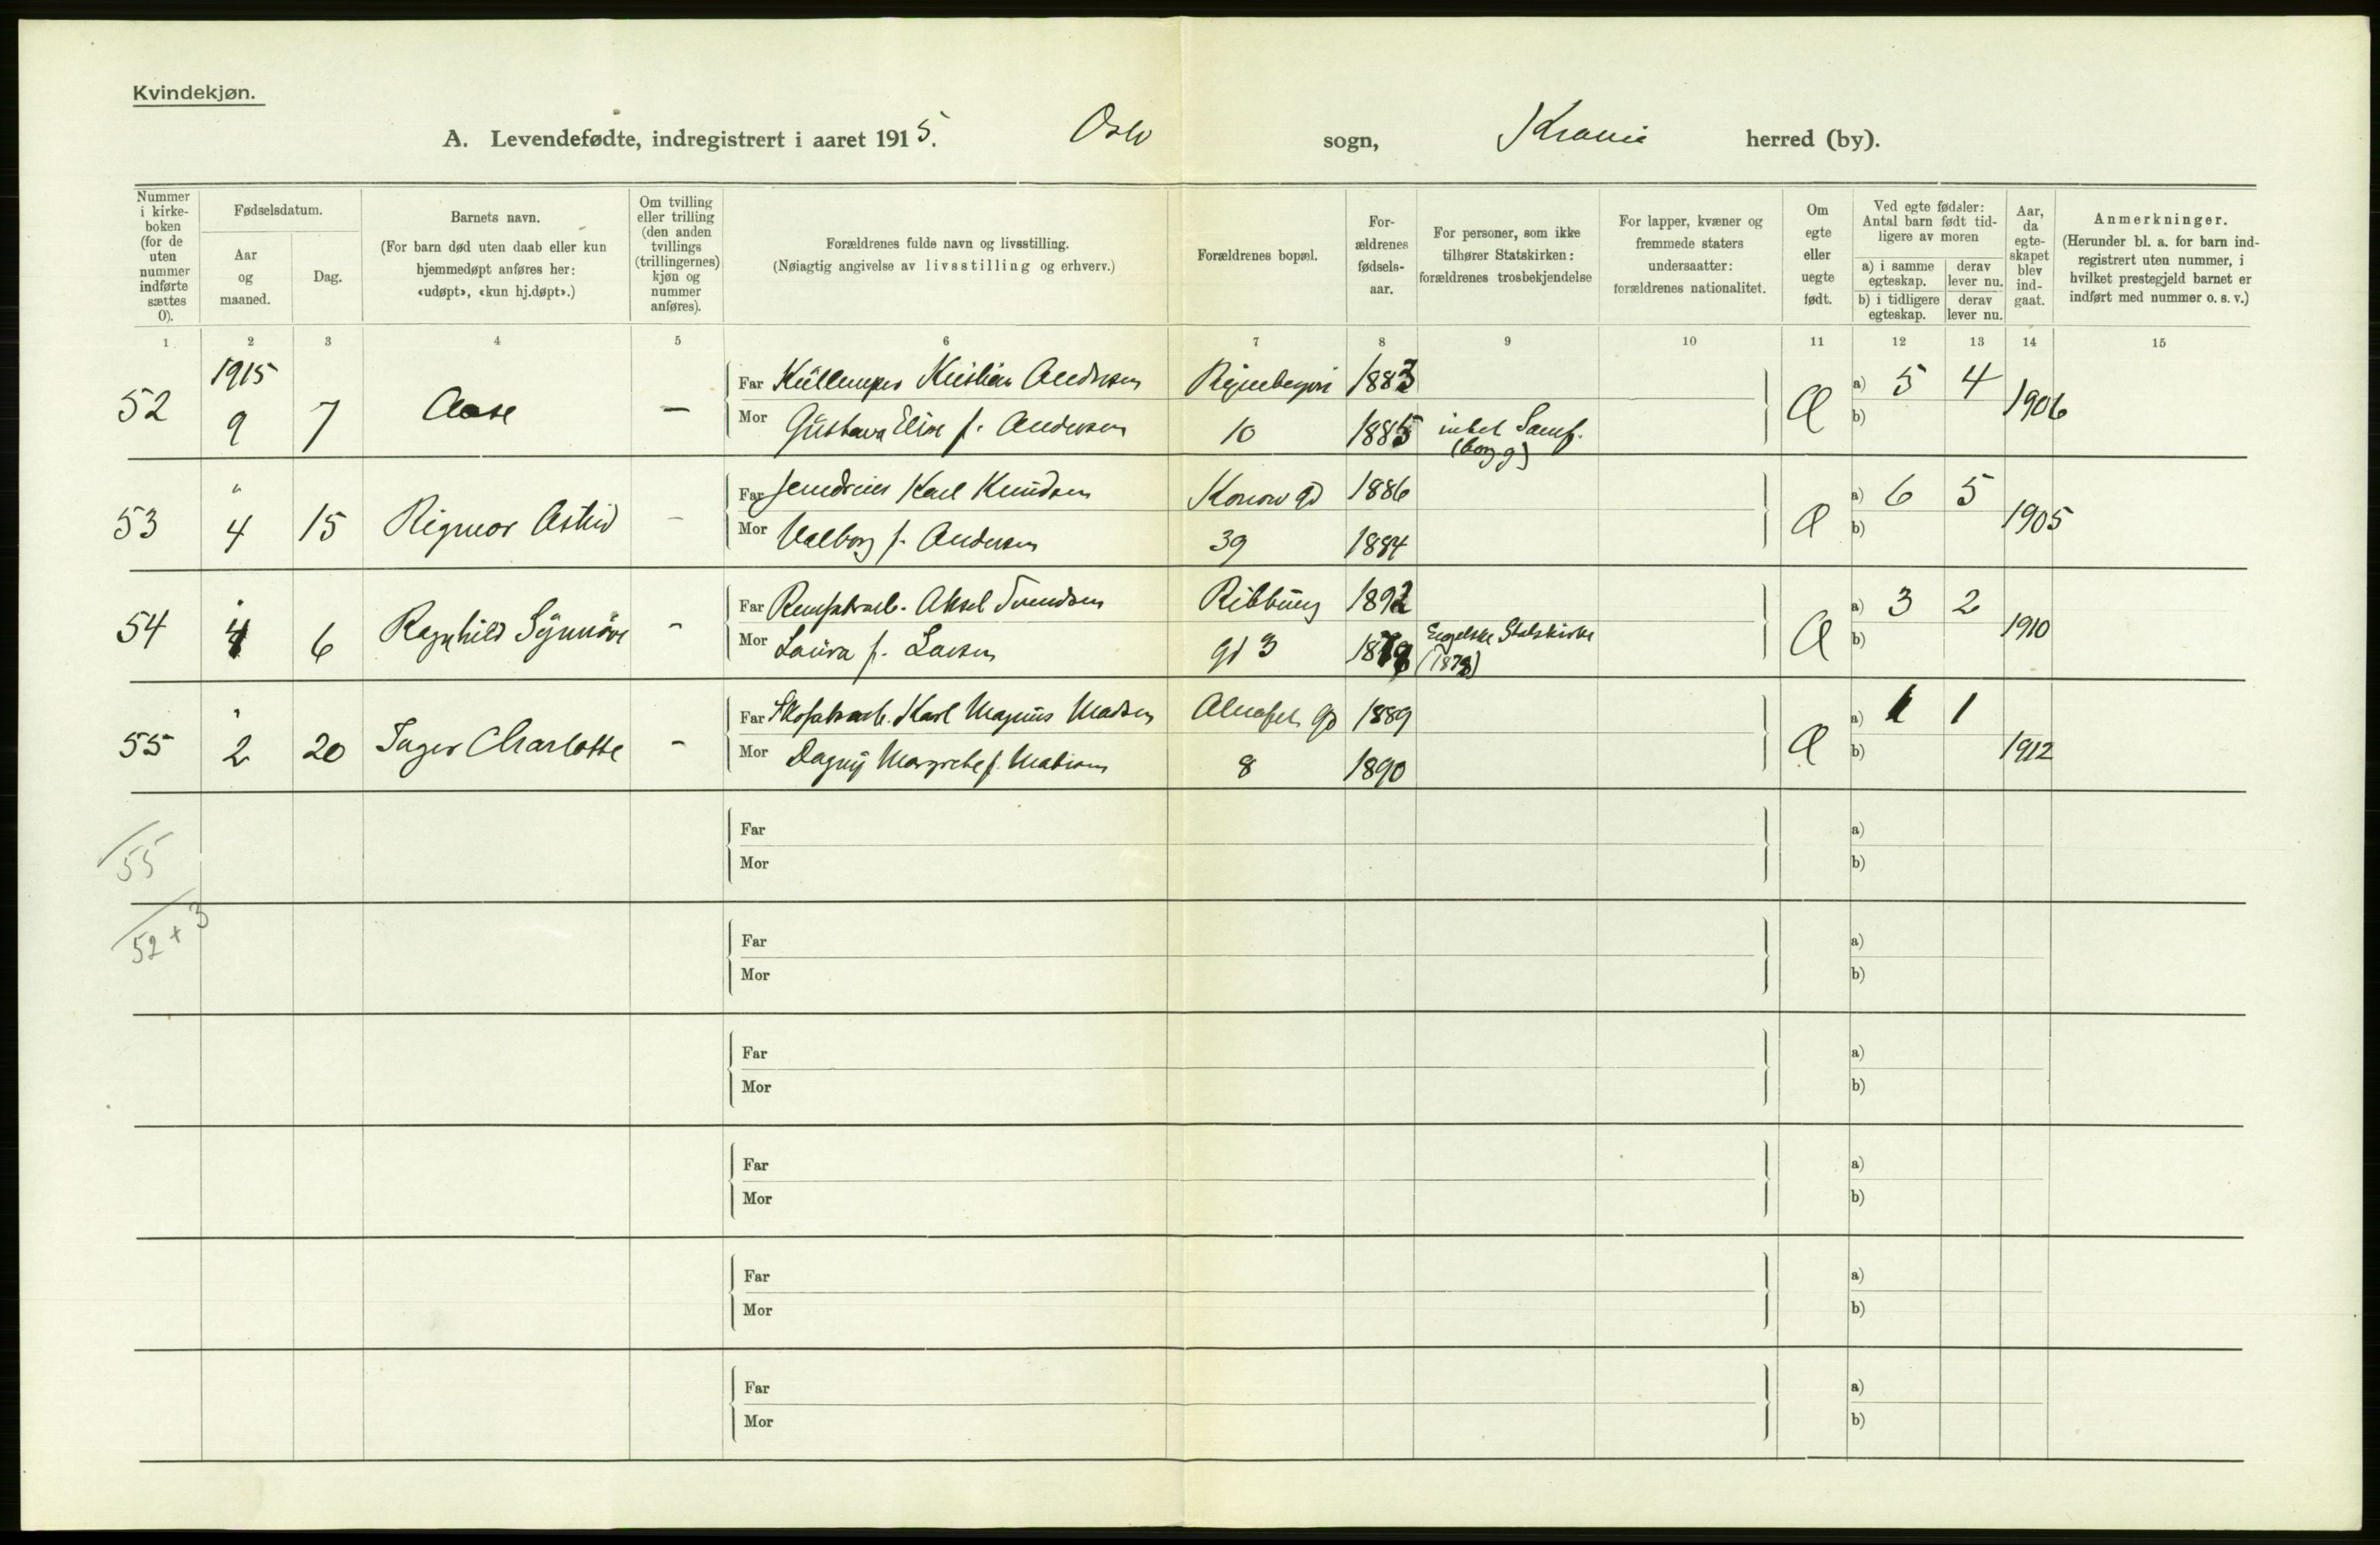 Kvindekjøn.
A. Levendefødte, indregistrert i aaret 1915. Oslo sogn, Krania herred (by).
Nummer i kirke-boken (for de uten nummer indførte sættes 0).
Fødselsdatum.
Aar og maaned.
Dag.
Barnets navn.
(For barn død uten daab eller kun hjemmedøpt anføres her: «udøpt», «kun hj.døpt».)
Om tvilling eller trilling (den anden tvillings (trillingernes) kjøn og nummer anføres).
Forældrenes fulde navn og livsstilling.
(Nøiagtig angivelse av livsstilling og erhverv.)
Forældrenes bopæl.
For-ældrenes fødsels-aar.
For personer, som ikke tilhører Statskirken: forældrenes trosbekjendelse
For lapper, kvæner og fremmede staters undersaatter: forældrenes nationalitet.
Om egte eller uegte født.
Ved egte fødsler: Antal barn født tid-ligere av moren
a) i samme egteskap.
derav lever nu.
b) i tidligere egteskap.
derav lever nu.
Aar, da egte-skapet blev ind-gaat.
Anmerkninger.
(Herunder bl. a. for barn ind-registrert uten nummer, i hvilket prestegjeld barnet er indført med nummer o. s. v.)
1 2 3 4 5 6 7 8 9 10 11 12 13 14 15
1915
52 9 7 Aase —
Far Kristian Andersen 1883
Mor Gustava Elise f. Andersen 10 1885
Æ a) 5 4 b) 1906
" 53 4 15 Rigmor Astrid -
Far Karl Knudsen Konow gd 1886
Mor Valborg f. Andersen 39 1884
Æ a) 6 5 b) 1905
" 54 4 6 Ragnhild Synnöve -
Far Aksel Svendsen Ribbung 1892
Mor Laura f. Larsen gd 3 Engelske Statskirke (1878)
Æ a) 3 2 b) 1910
" 55 2 20 Inger Charlotte -
Far Karl Magnus Madsen Alnafet gd 1889
Mor Dagny Margrethe f. 8 1890
Æ a) 1 1 b) 1912
55
Far
Mor
a)
b)
52 + 3
Far
Mor
a)
b)
Far
Mor
a)
b)
Far
Mor
a)
b)
Far
Mor
a)
b)
Far
Mor
a)
b)